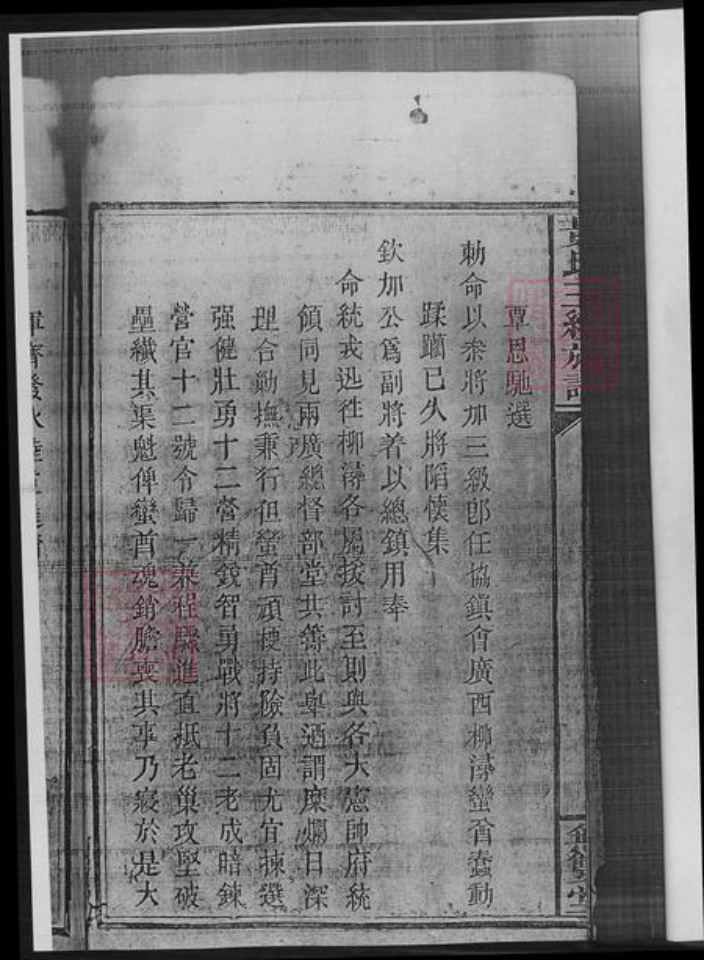 覃恩馳選
勅命以叅將加三級卽任協鎮會廣西柳潯蠻酋蠢動
蹂躪已久將陷懷集
欽加公爲副將着以總鎮用奉
命統戎迅徃柳潯各屬拔討至則與各大憲帥府統
領同見兩廣總督部堂共籌此舉迺謂糜爛日深
理合勦撫兼行但蠻酋頑梗持險負固尤宜揀選
强健壯勇十二營精銳智勇戰將十二老成暗鍊
營官十二號令歸一兼程驟進直抵老巢攻堅破
壘殲其渠魁俾蠻酋魂銷膽喪其事乃寢於是大